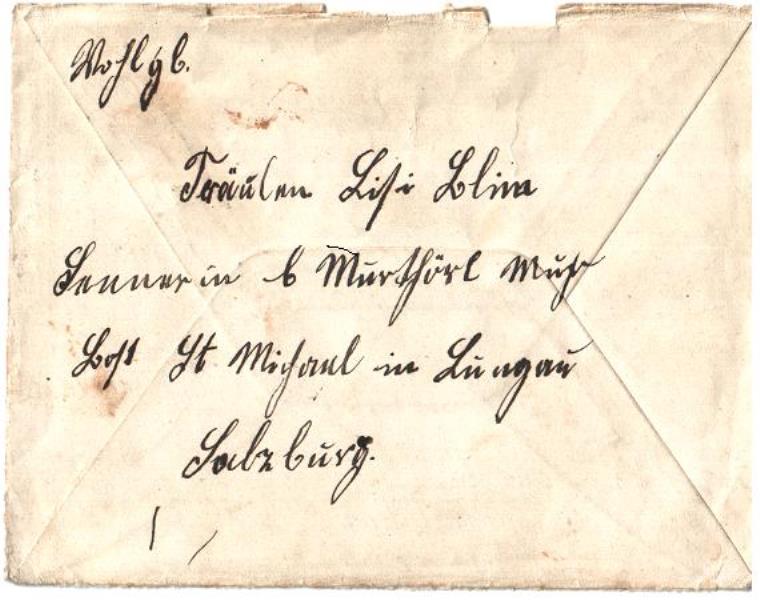 Wohlgb.
Fräulen Lisi
Sennerin b Murthörl Muhr
Post St Michael in Lungau
Salzburg.